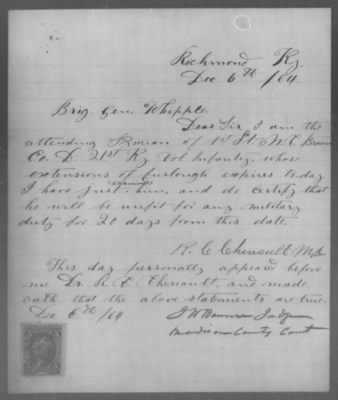 Richmond Ky.
Dec 6th /64
Brig. Gen. Whipple
Dear Sir, I am the
attending of 1st Lt
Co. D. 21st Ky Vol Infantry, whose
extensions of furlough expires today
I have just examined him, and do certify that
he will be unfit for any military
duty for 20 days from this date.
R. C. Chenault M.D.
This day personally appeared before
me Dr. R. C. Chenault, and made
oath that the above statements are true.
Dec 6th /64
Judge
Madison County Court